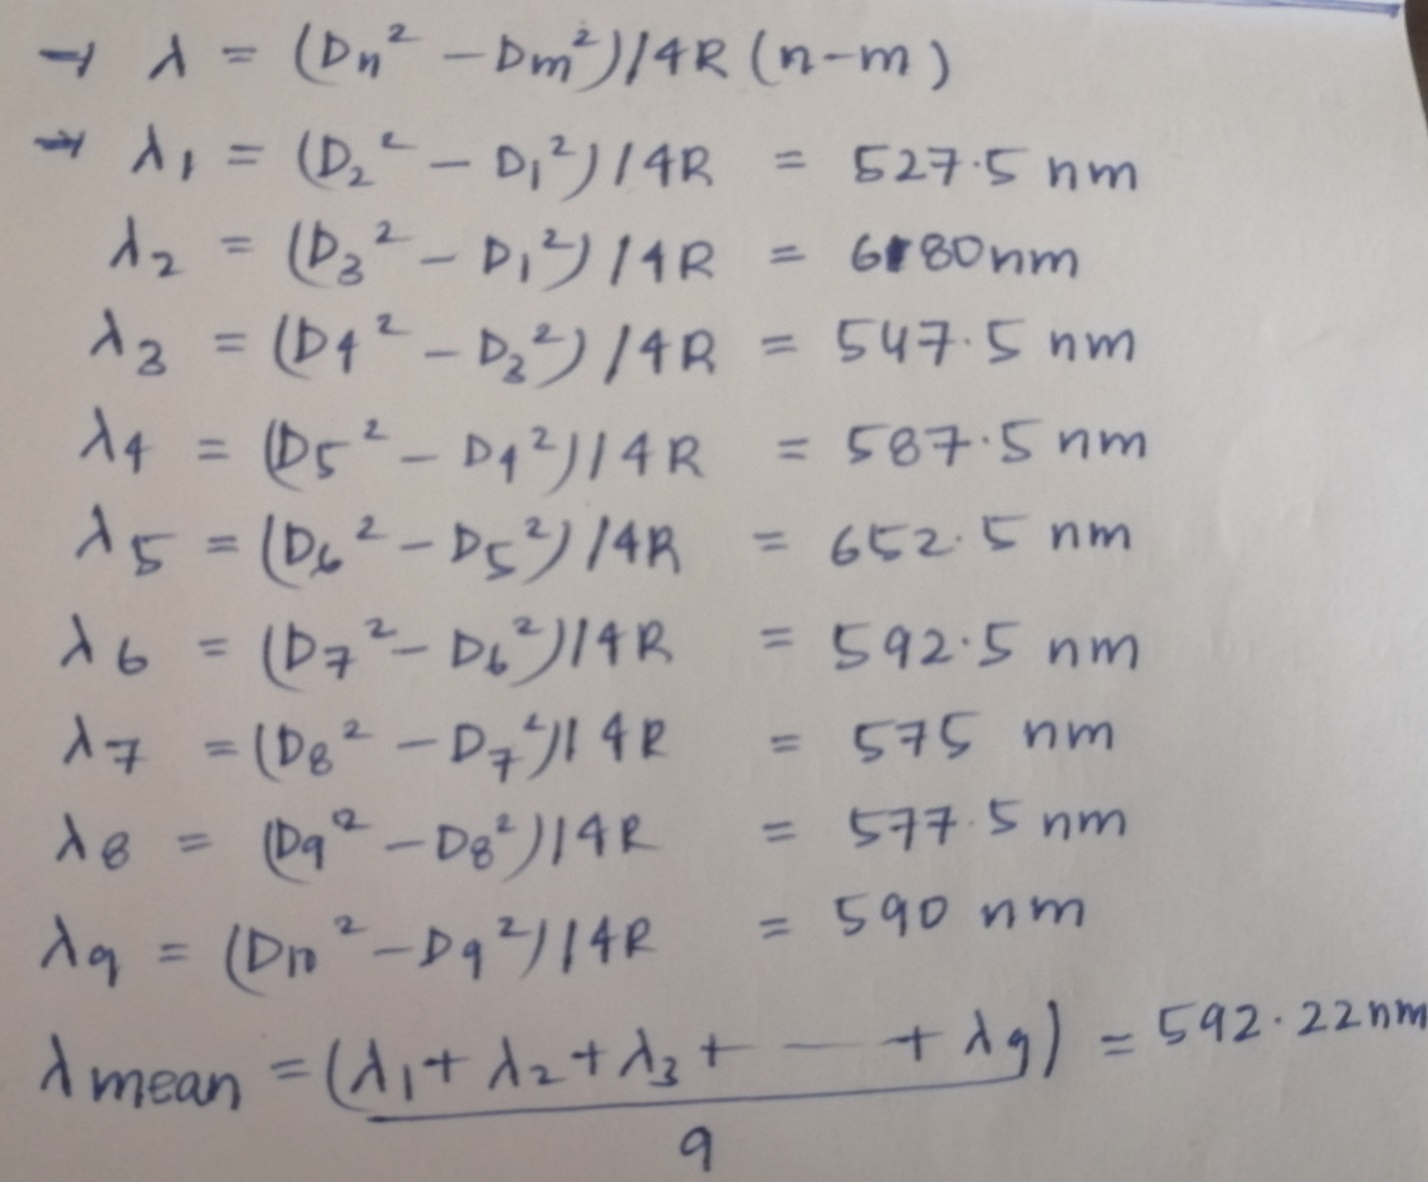 → λ = (Dn² - Dm²)/4R (n-m)
→ λ1 = (D2² - D1²)/4R = 527.5 nm
λ2 = (D3² - D1²)/4R = 680nm
λ3 = (D4² - D3²)/4R = 547.5 nm
λ4 = (D5² - D4²)/4R = 587.5 nm
λ5 = (D6² - D5²)/4R = 652.5 nm
λ6 = (D7² - D6²)/4R = 592.5 nm
λ7 = (D8² - D7²)/4R = 575 nm
λ8 = (D9² - D8²)/4R = 577.5 nm
λ9 = (D10² - D9²)/4R = 590 nm
λmean = (λ1 + λ2 + λ3 + --- + λ9) = 592.22nm
9